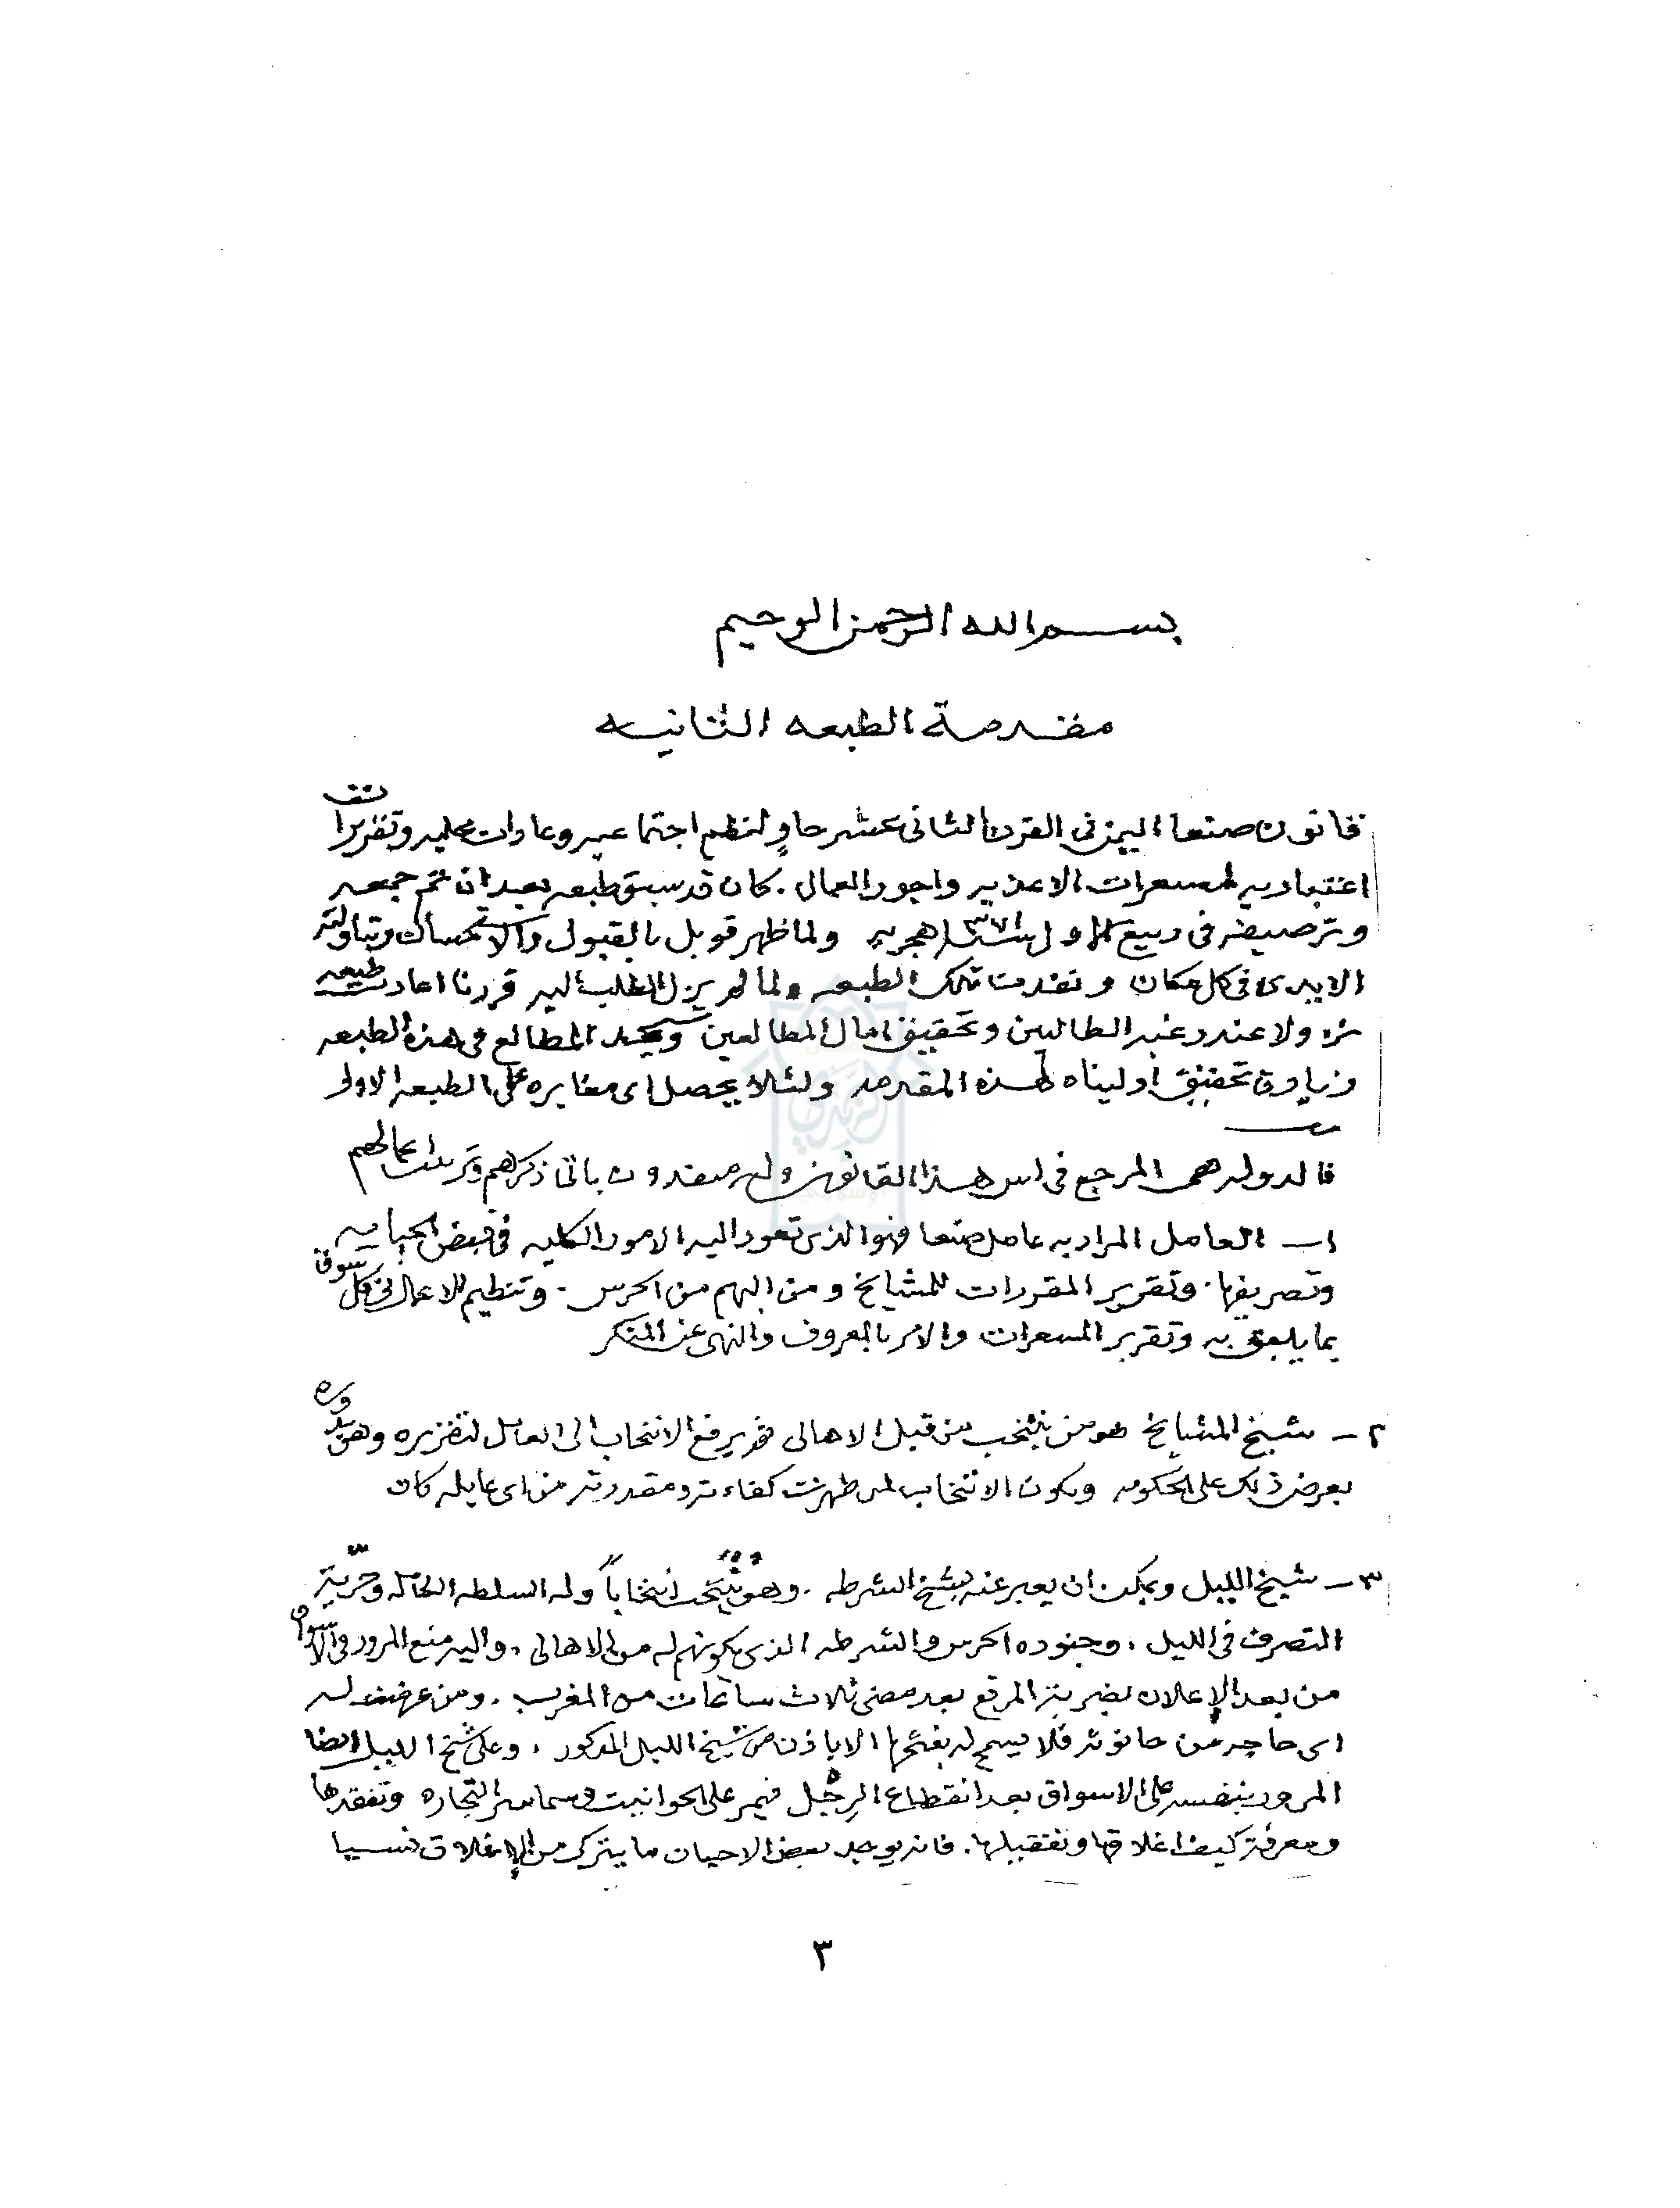 بسم الله الرحمن الرحيم
مقدمة الطبعه الثانيه
قانون صنعا اليمن فى القرن الثانى عشر حاوٍ لنظم اجتماعيه وعادات محليه وتقريرات
اعتياديه لمسعرات الاغذيه واجور العمال . كان قد سبق طبعه بعد ان تم جمعه
وترصيفه فى ربيع الاول سنة ١٣٧١ هجريه ولما ظهر قوبل بالقبول والاستحسان وتناولته
الايدى فى كل مكان ونفدت تلك الطبعه ولما لم يزل الطلب اليه قررنا اعادت طبعه
نزولا عند رغبة الطالبين وتحقيق امال المطالعين وسيجد المطالع فى هذه الطبعه
زيادة تحقيق اوليناه لهذه المقدمه ولئلا يحصل اى مغايره على الطبعه الاولى
فالدوله هى المرجع فى اس هذا القانون وله منفذون ياتى ذكرهم وترتيبات اعمالهم
١ ـ العامل المراد به عامل صنعا فهو الذى تعود اليه الامور الكليه فى قبض الجبايه
وتصريفها . وتقرير المقررات للمشايخ ومن اليهم من الحرس . وتنظيم الاعمال فى كل سوق
بما يليق به وتقرير المسعرات والامر بالمعروف والنهى عن المنكر
٢ ـ شيخ المشايخ هو من ينتخب من قبل الاهالى ثم يرفع الانتخاب الى العامل لتقريره وهو بدوره
يعرض ذلك على الحكومه ويكون الانتخاب لمن ظهرت كفاءته ومقدرته من اى عايله كان
٣ ـ شيخ الليل ويمكن ان يعبر عنه بشيخ الشرطه . وهو ينتخب انتخاباً وله السلطه الكامله وحرّية
التصرف فى الليل ، وجنوده الحرس والشرطه الذى يكونهم له من الاهالى ، واليه منع المرور فى الاسواق
من بعد الإعلان بضربة المرفع بعد مضى ثلاث ساعات من المغرب . ومن عرضت له
اى حاجه من حانوته فلا يسمح له بفتحها الا باذن من شيخ الليل المذكور ، وعلى شيخ الليل ايضا
المرور بنفسه على الاسواق بعد انقطاع الرِجْل فيمر على الحوانيت وسماسر التجاره وتفقدها
ومعرفة كيف اغلاقها وتقفيلها . فانه يوجد بعض الاحيان ما يترك من الإغلاق نسيا
٣